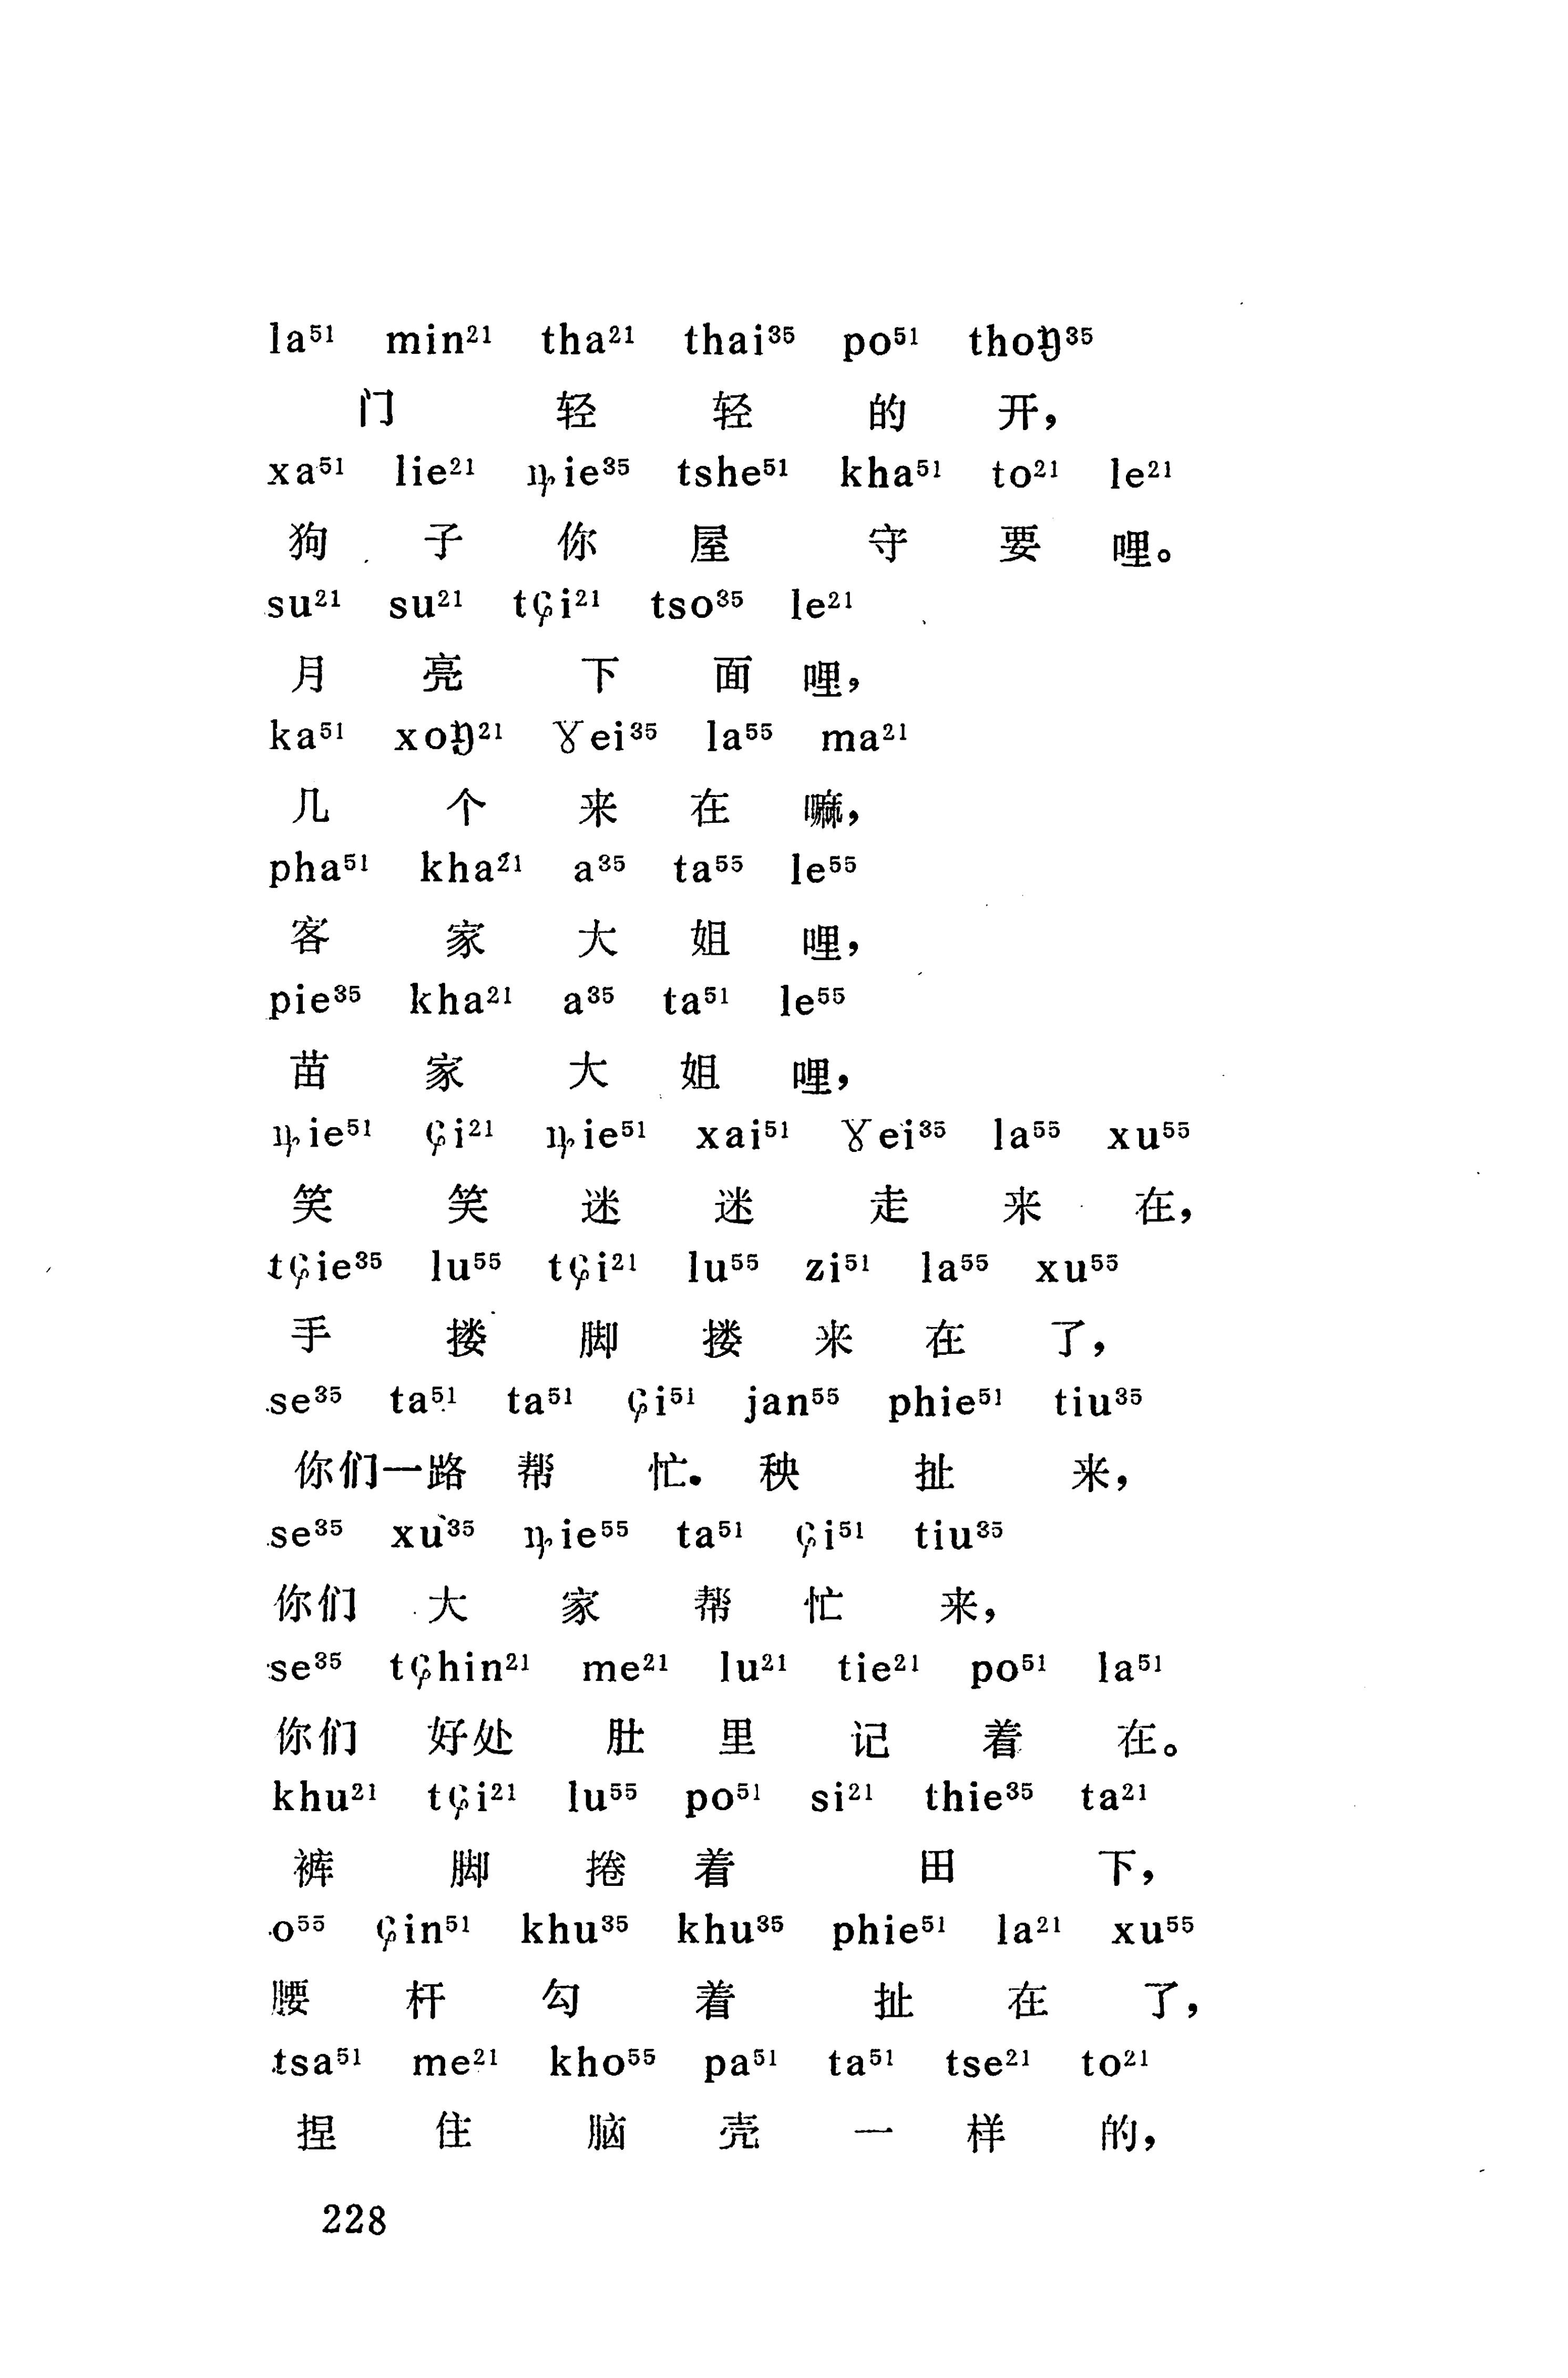 la⁵¹ min²¹ tha²¹ thai³⁵ po⁵¹ thoŋ³⁵
门 轻 轻 的 开，
xa⁵¹ lie²¹ ȵie³⁵ tshe⁵¹ kha⁵¹ to²¹ le²¹
狗 子 你 屋 守 要 哩。
su²¹ su²¹ tɕi²¹ tso³⁵ le²¹
月 亮 下 面 哩，
ka⁵¹ xoŋ²¹ ɣei³⁵ la⁵⁵ ma²¹
几 个 来 在 嘛，
pha⁵¹ kha²¹ a³⁵ ta⁵⁵ le⁵⁵
客 家 大 姐 哩，
pie³⁵ kha²¹ a³⁵ ta⁵¹ le⁵⁵
苗 家 大 姐 哩，
ȵie⁵¹ ɕi²¹ ȵie⁵¹ xai⁵¹ ɣei³⁵ la⁵⁵ xu⁵⁵
笑 笑 迷 迷 走 来 在，
tɕie³⁵ lu⁵⁵ tɕi²¹ lu⁵⁵ zi⁵¹ la⁵⁵ xu⁵⁵
手 搂 脚 搂 来 在 了，
se³⁵ ta⁵¹ ta⁵¹ ɕi⁵¹ jan⁵⁵ phie⁵¹ tiu³⁵
你们一路 帮 忙. 秧 扯 来，
se³⁵ xu³⁵ ȵie⁵⁵ ta⁵¹ ɕi⁵¹ tiu³⁵
你们 大 家 帮 忙 来，
se³⁵ tɕhin²¹ me²¹ lu²¹ tie²¹ po⁵¹ la⁵¹
你们 好处 肚 里 记 着 在。
khu²¹ tɕi²¹ lu⁵⁵ po⁵¹ si²¹ thie³⁵ ta²¹
裤 脚 捲 着 田 下，
o⁵⁵ ɕin⁵¹ khu³⁵ khu³⁵ phie⁵¹ la²¹ xu⁵⁵
腰 杆 勾 着 扯 在 了，
tsa⁵¹ me²¹ kho⁵⁵ pa⁵¹ ta⁵¹ tse²¹ to²¹
捏 住 脑 壳 一 样 的，
228